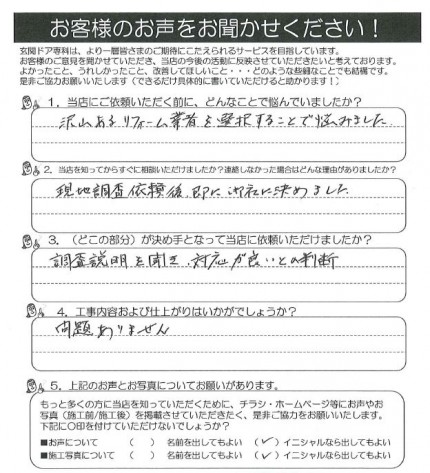 お客様のお声をお聞かせください！
玄関ドア専科は、より一層皆さまのご期待にこたえられるサービスを目指しています。
お客様のご意見を聞かせていただき、当店の今後の活動に反映させていただきたいと考えております。
よかったこと、うれしかったこと、改善してほしいこと・・・どのような些細なことでも結構です。
是非ご協力お願いします（できるだけ具体的に書いていただけると助かります！）
1．当店にご依頼いただく前に、どんなことで悩んでいましたか？
沢山あるリフォーム業者を選択することで悩みました
2．当店を知ってからすぐに相談いただけましたか？連絡しなかった場合はどんな理由がありましたか？
現地調査依頼後、即に御社に決めました
3．（どこの部分）が決め手となって当店に依頼いただけましたか？
調査説明を聞き、対応が良いとの判断
4．工事内容および仕上がりはいかがでしょうか？
問題ありません
5．上記のお声とお写真についてお願いがあります。
もっと多くの方に当店を知っていただくために、チラシ・ホームページ等にお声やお
写真（施工前/施工後）を掲載させていただきたく、是非ご協力をお願いいたします。
下記に〇印を付けていただけないでしょうか？
■お声について （　） 名前を出してもよい （✓）イニシャルなら出してもよい
■施工写真について （　） 名前を出してもよい （✓）イニシャルなら出してもよい